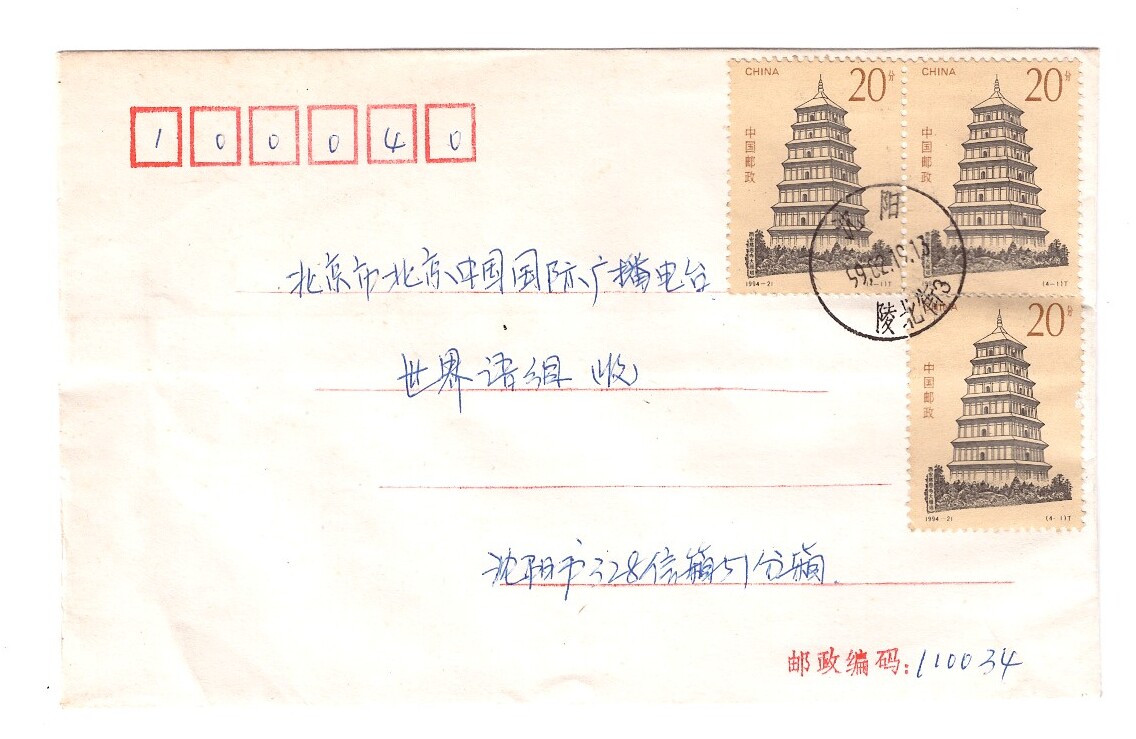 100040
CHINA 20分
中国邮政
1994-21 (4-1)T
CHINA 20分
中国邮政
1994-21 (4-1)T
沈阳
陵北街3
20分
中国邮政
1994-21 (4-1)T
北京市北京中国国际广播电台
世界语组(收)
沈阳市328信箱51分箱
邮政编码:110034